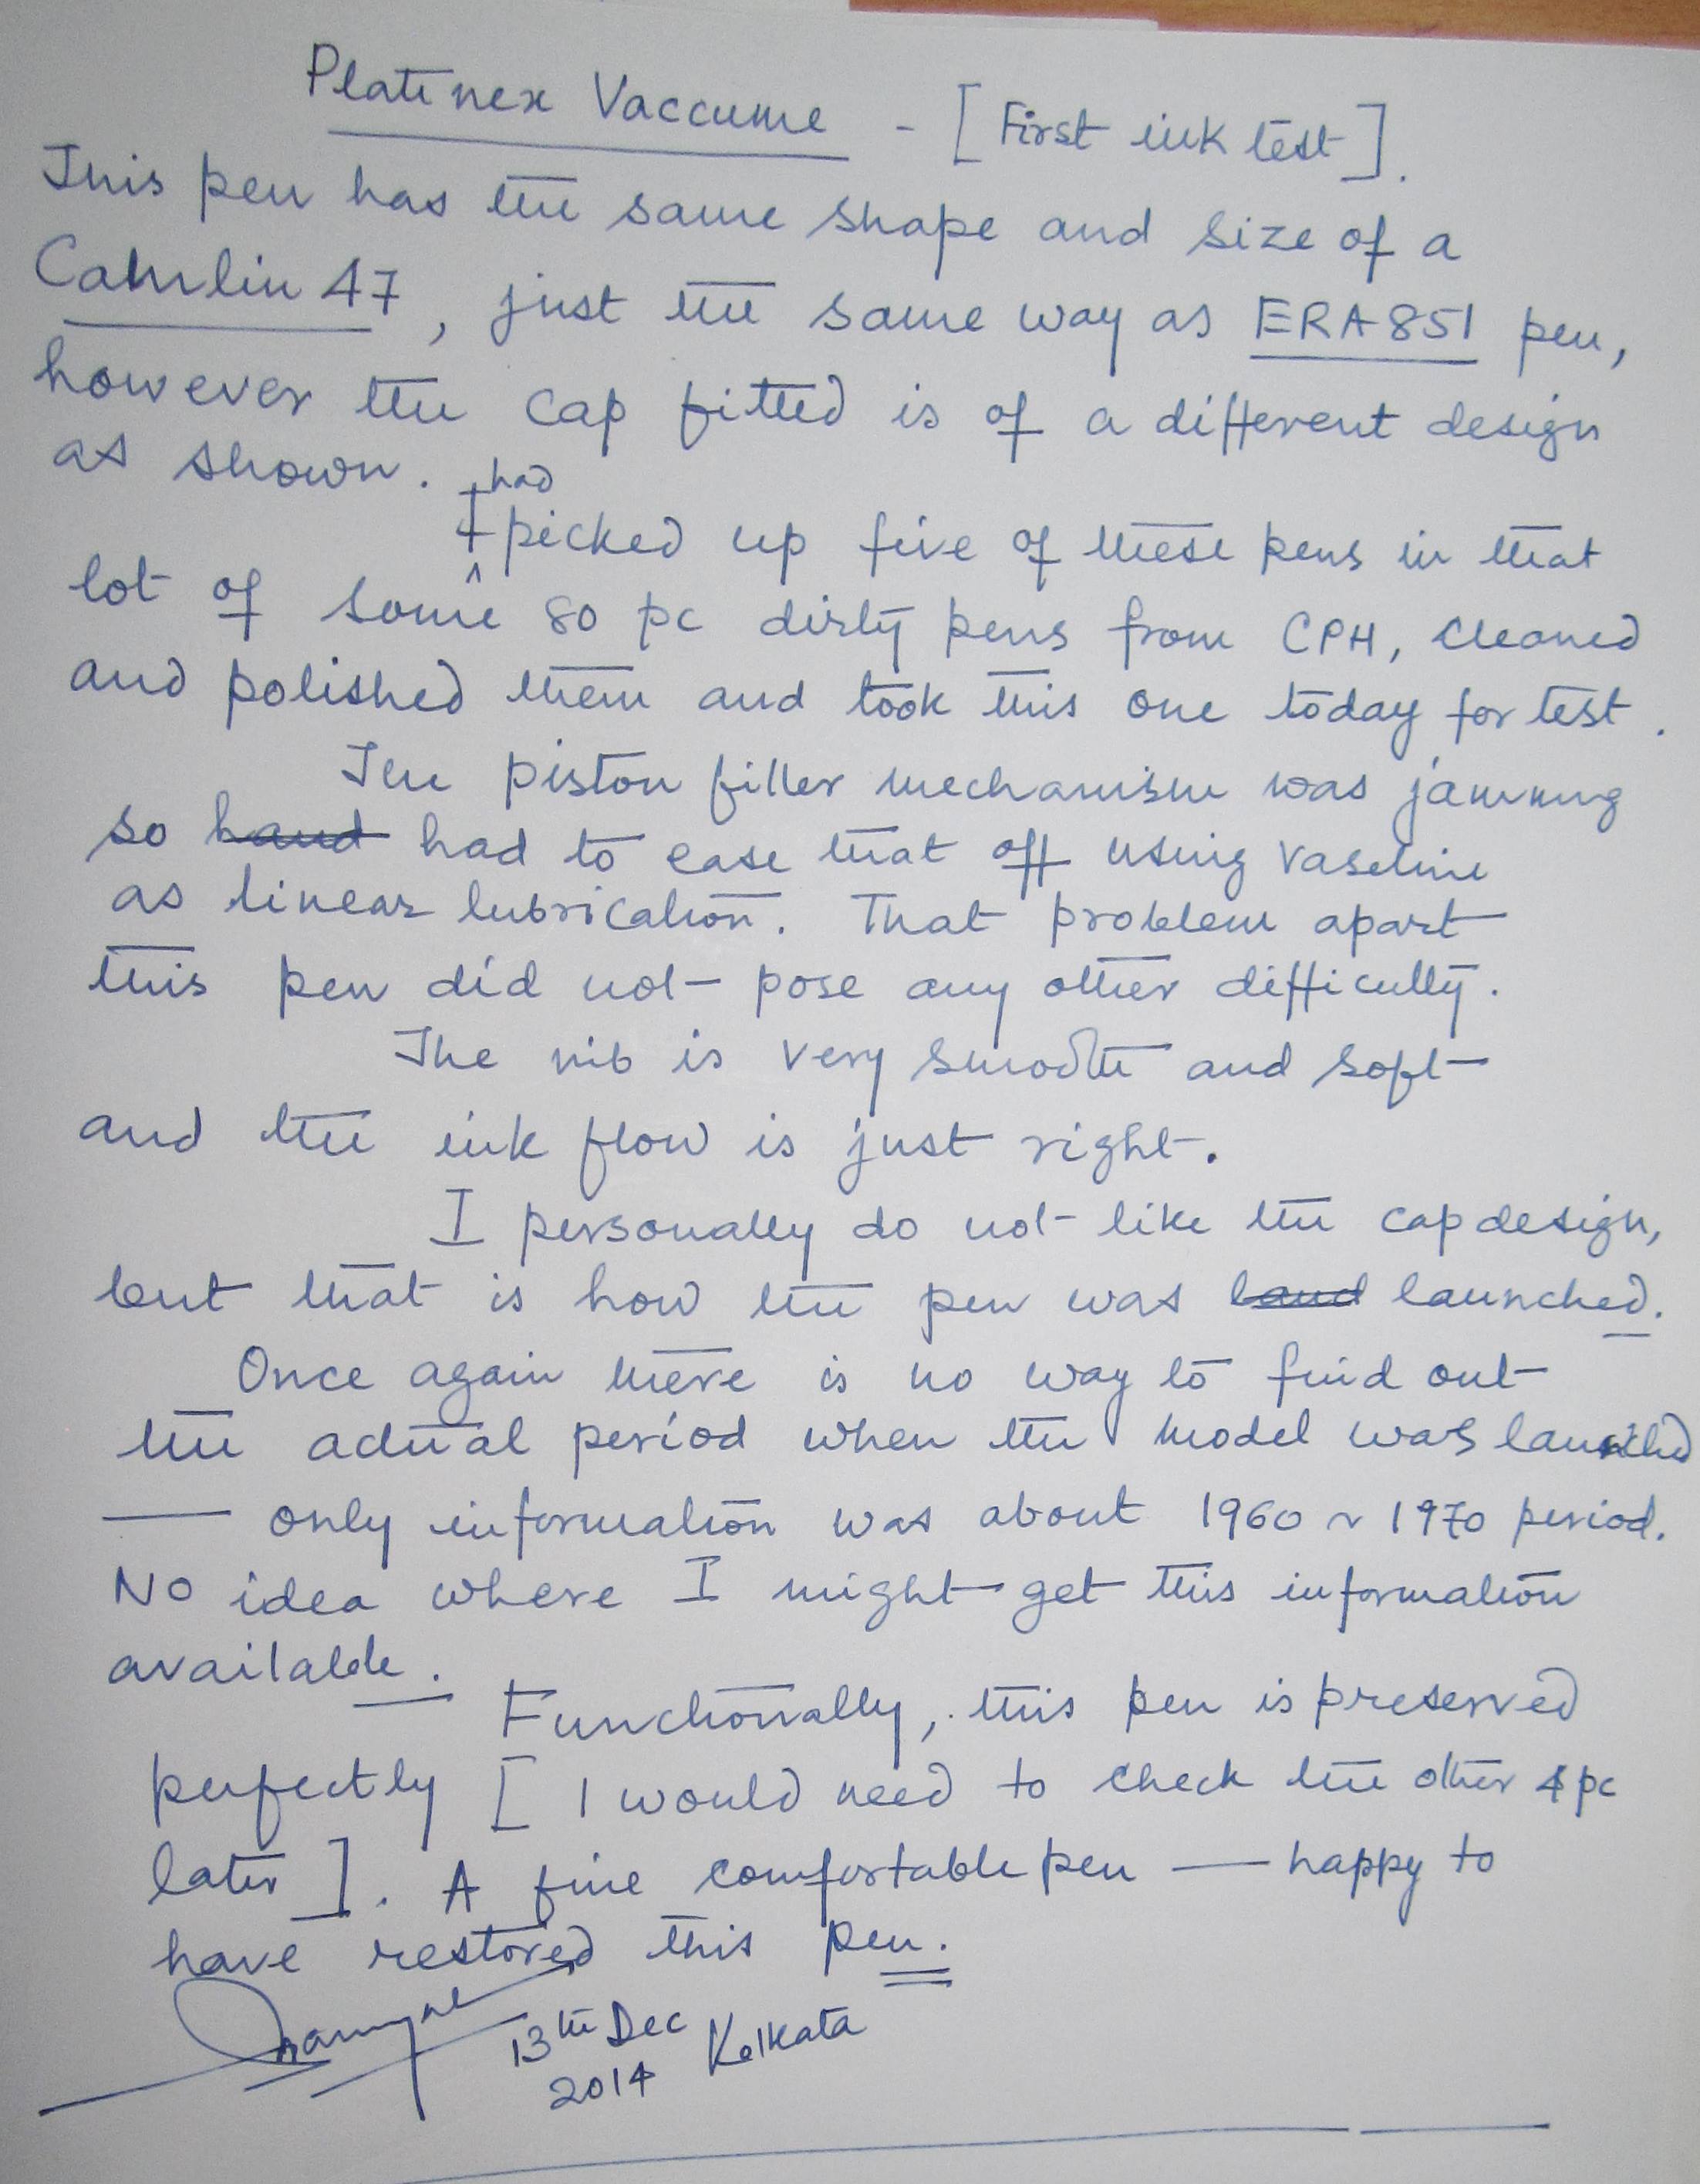 Platinex Vaccume - [First ink test].
This pen has the same shape and size of a
Camlin 47, just the same way as ERA 851 pen,
however the cap fitted is of a different design
as shown.
I had picked up five of these pens in that
lot of some 80 pc dirty pens from CPH, cleaned
and polished them and took this one today for test.
The piston filler mechanism was jamming
so haud had to ease that off using vaseline
as linear lubrication. That problem apart
this pen did not pose any other difficulty.
The nib is very smooth and soft
and the ink flow is just right.
I personally do not like the cap design,
but that is how the pen was laud launched.
Once again there is no way to find out
the actual period when the model was launched
— only information was about 1960 ~ 1970 period.
No idea where I might get this information
available.
Functionally, this pen is preserved
perfectly [I would need to check the other 4 pc
later]. A fine comfortable pen — happy to
have restored this pen.
13th Dec Kolkata
2014